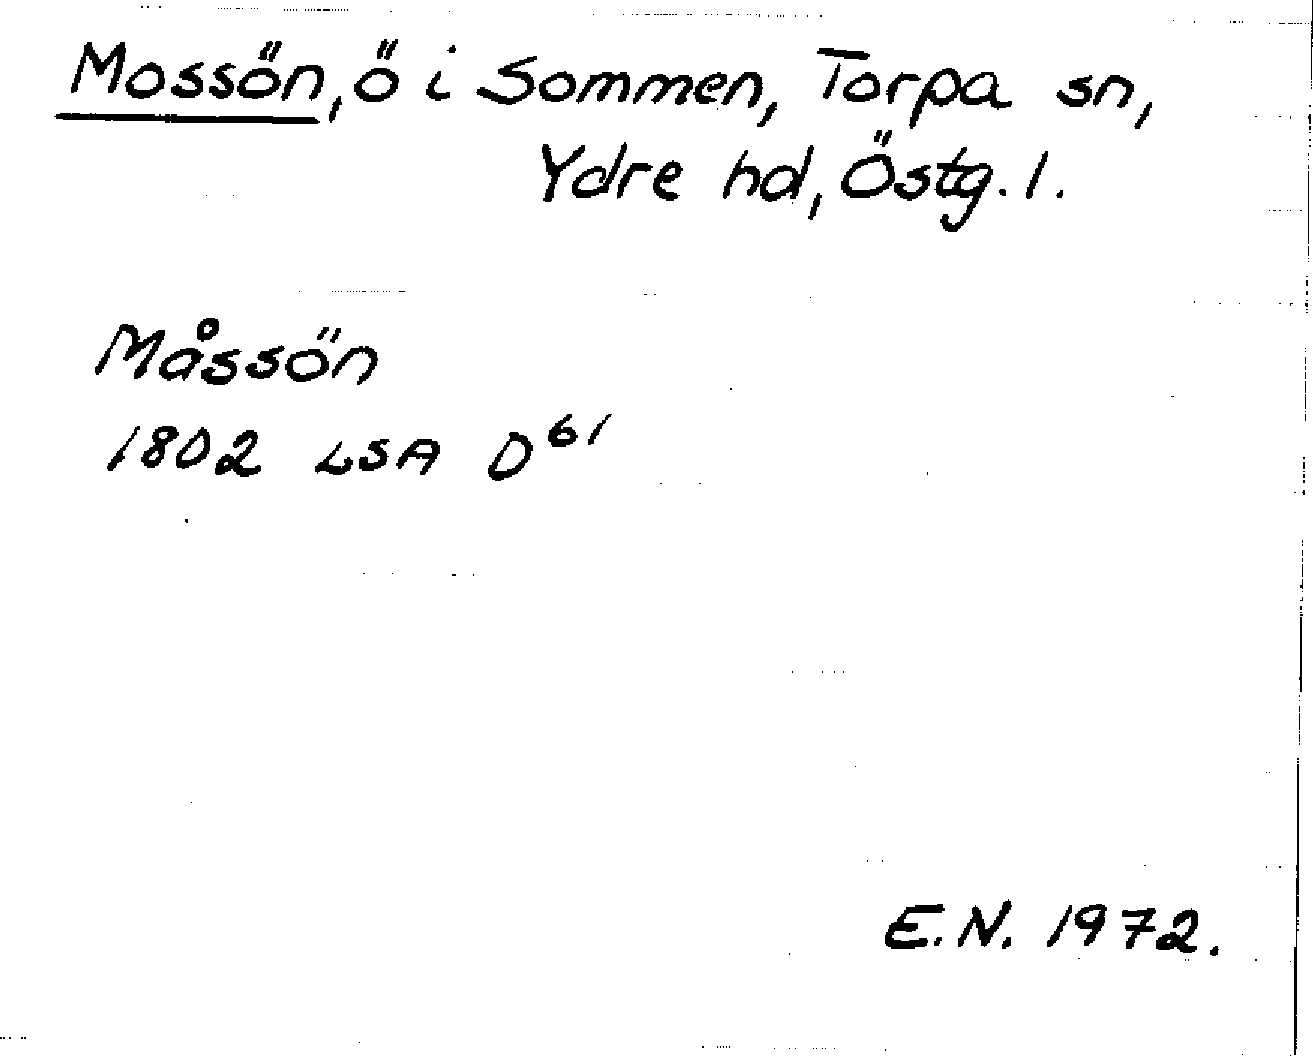 Mossön, ö i Sommen, Torpa sn,
Ydre hd, Östg. l.
Måssön
1802 LSA D61
E.N. 1972.